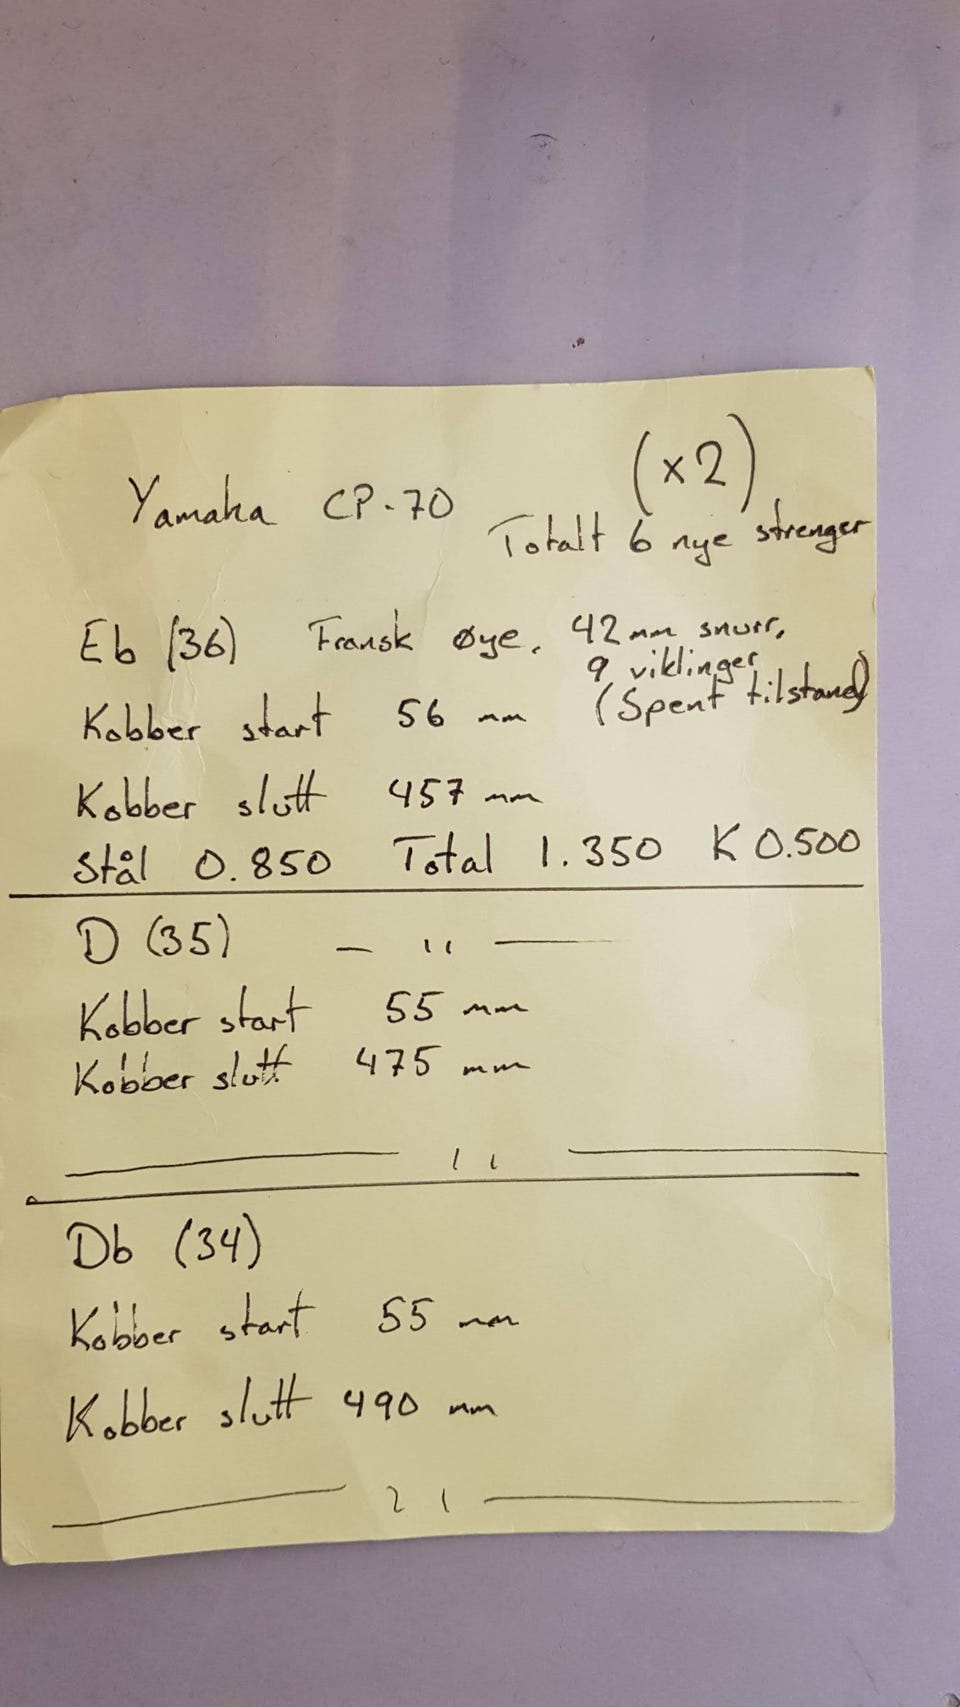 (x2)
Yamaha CP-70
Totalt 6 nye strenger
Eb (36) Fransk øye. 42 mm snurr,
9 viklinger
(Spent tilstand)
Kobber start 56 mm
Kobber slutt 457 mm
Stål 0.850 Total 1.350 K 0.500
D (35) — ıı —
Kobber start 55 mm
Kobber slutt 475 mm
— ıı —
Db (34)
Kobber start 55 mm
Kobber slutt 490 mm
— ıı —